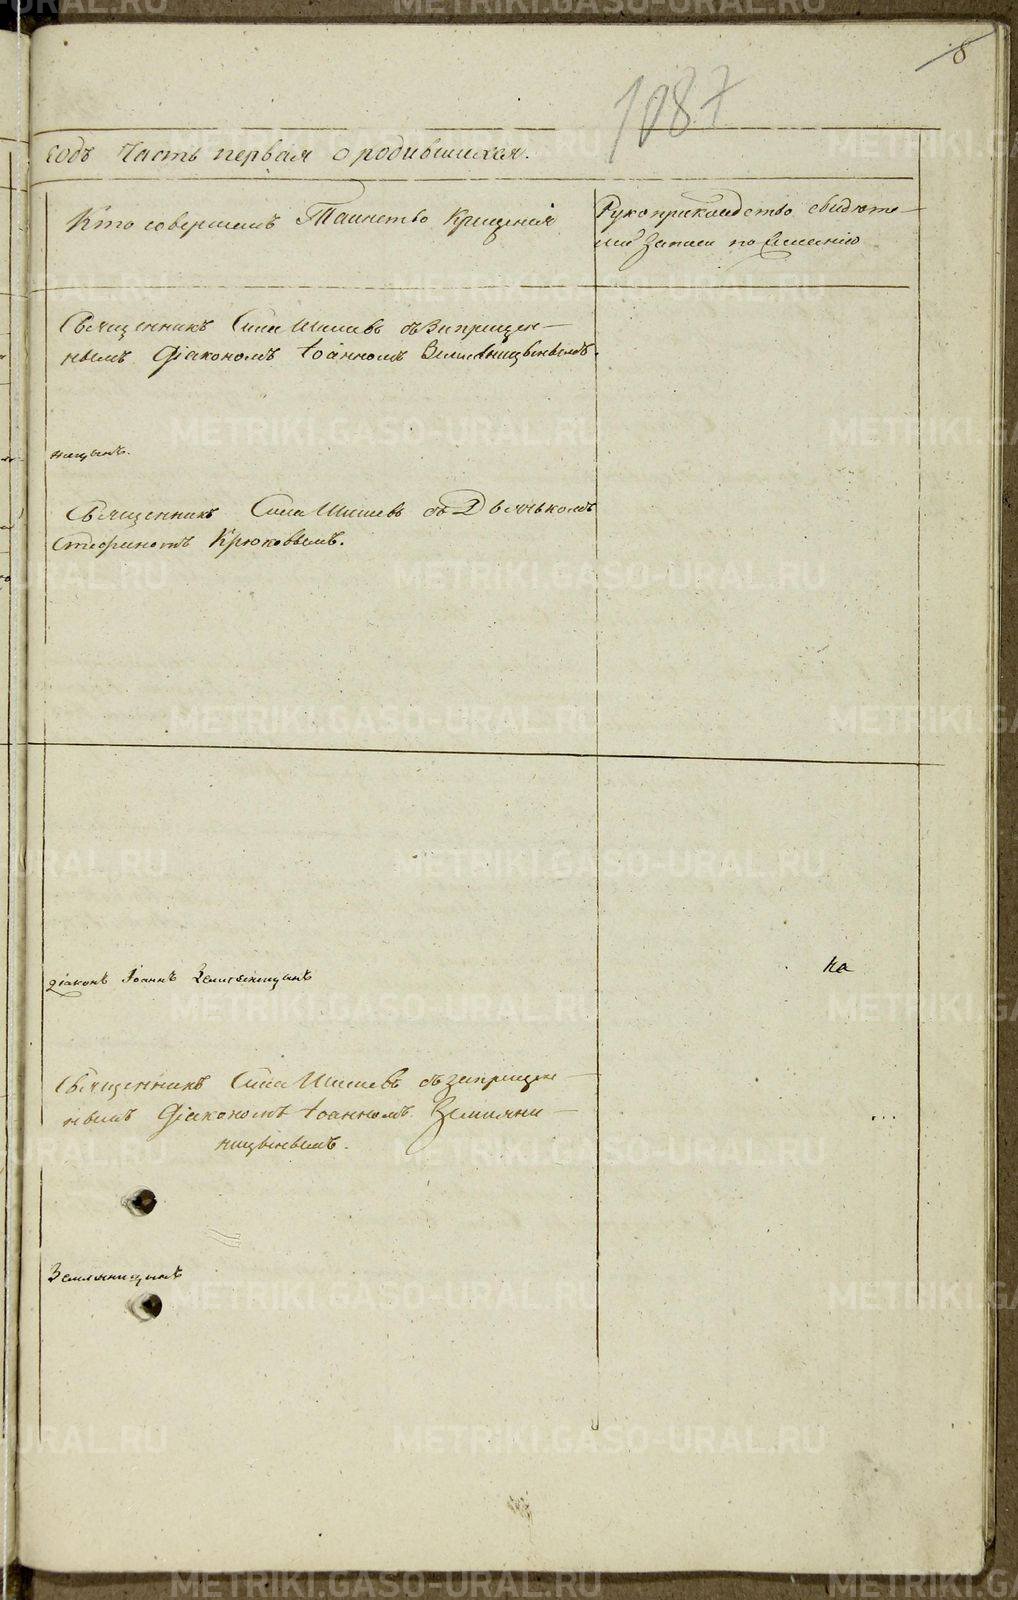 8
1087
годъ Часть первая о родившихся.
Кто совершалъ Таинство Крещенія
Рукоприкладство свидете-
лей записи по желанію
Священникъ Сила Шишевъ съ Запрещен-
нымъ Діакономъ Іоанномъ Земляницынымъ.
ницынъ.
Священникъ Сила Шишевъ съ Дьячькомъ
Стефаномъ Крюковымъ.
діаконъ Іоаннъ Земляницынъ
ка
Священникъ Сила Шишевъ съ запрещен-
нымъ Діакономъ Іоанномъ Земляни-
ницынымъ.
Земляницынъ
METRIKI.GASO-URAL.RU